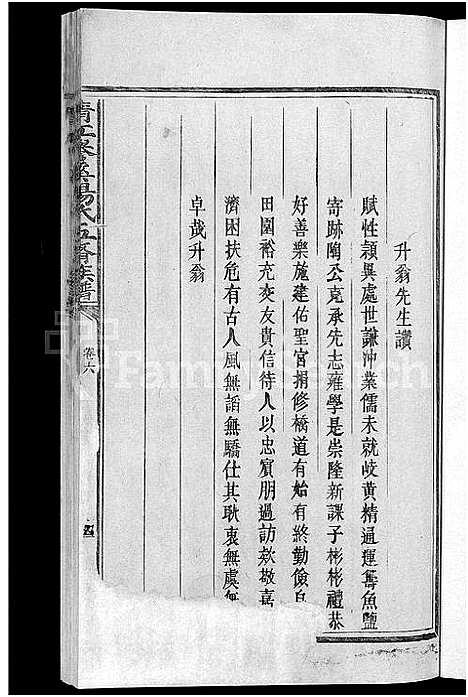 升翁先生讚
賦性穎異處世謙沖業儒未就岐黃精通運籌魚鹽
寄跡陶公克承先志雍學是崇隆新課子彬彬禮恭
好善樂施建佑聖宮捐修橋道有始有終勤儉自
田園裕充交友貴信待人以忠賓朋過訪欵敬嘉
濟困扶危有古人風無諂無驕仕其耿衷無虞無
卓哉升翁
清江
楊氏五脩族譜
卷六
五
FamilySearch